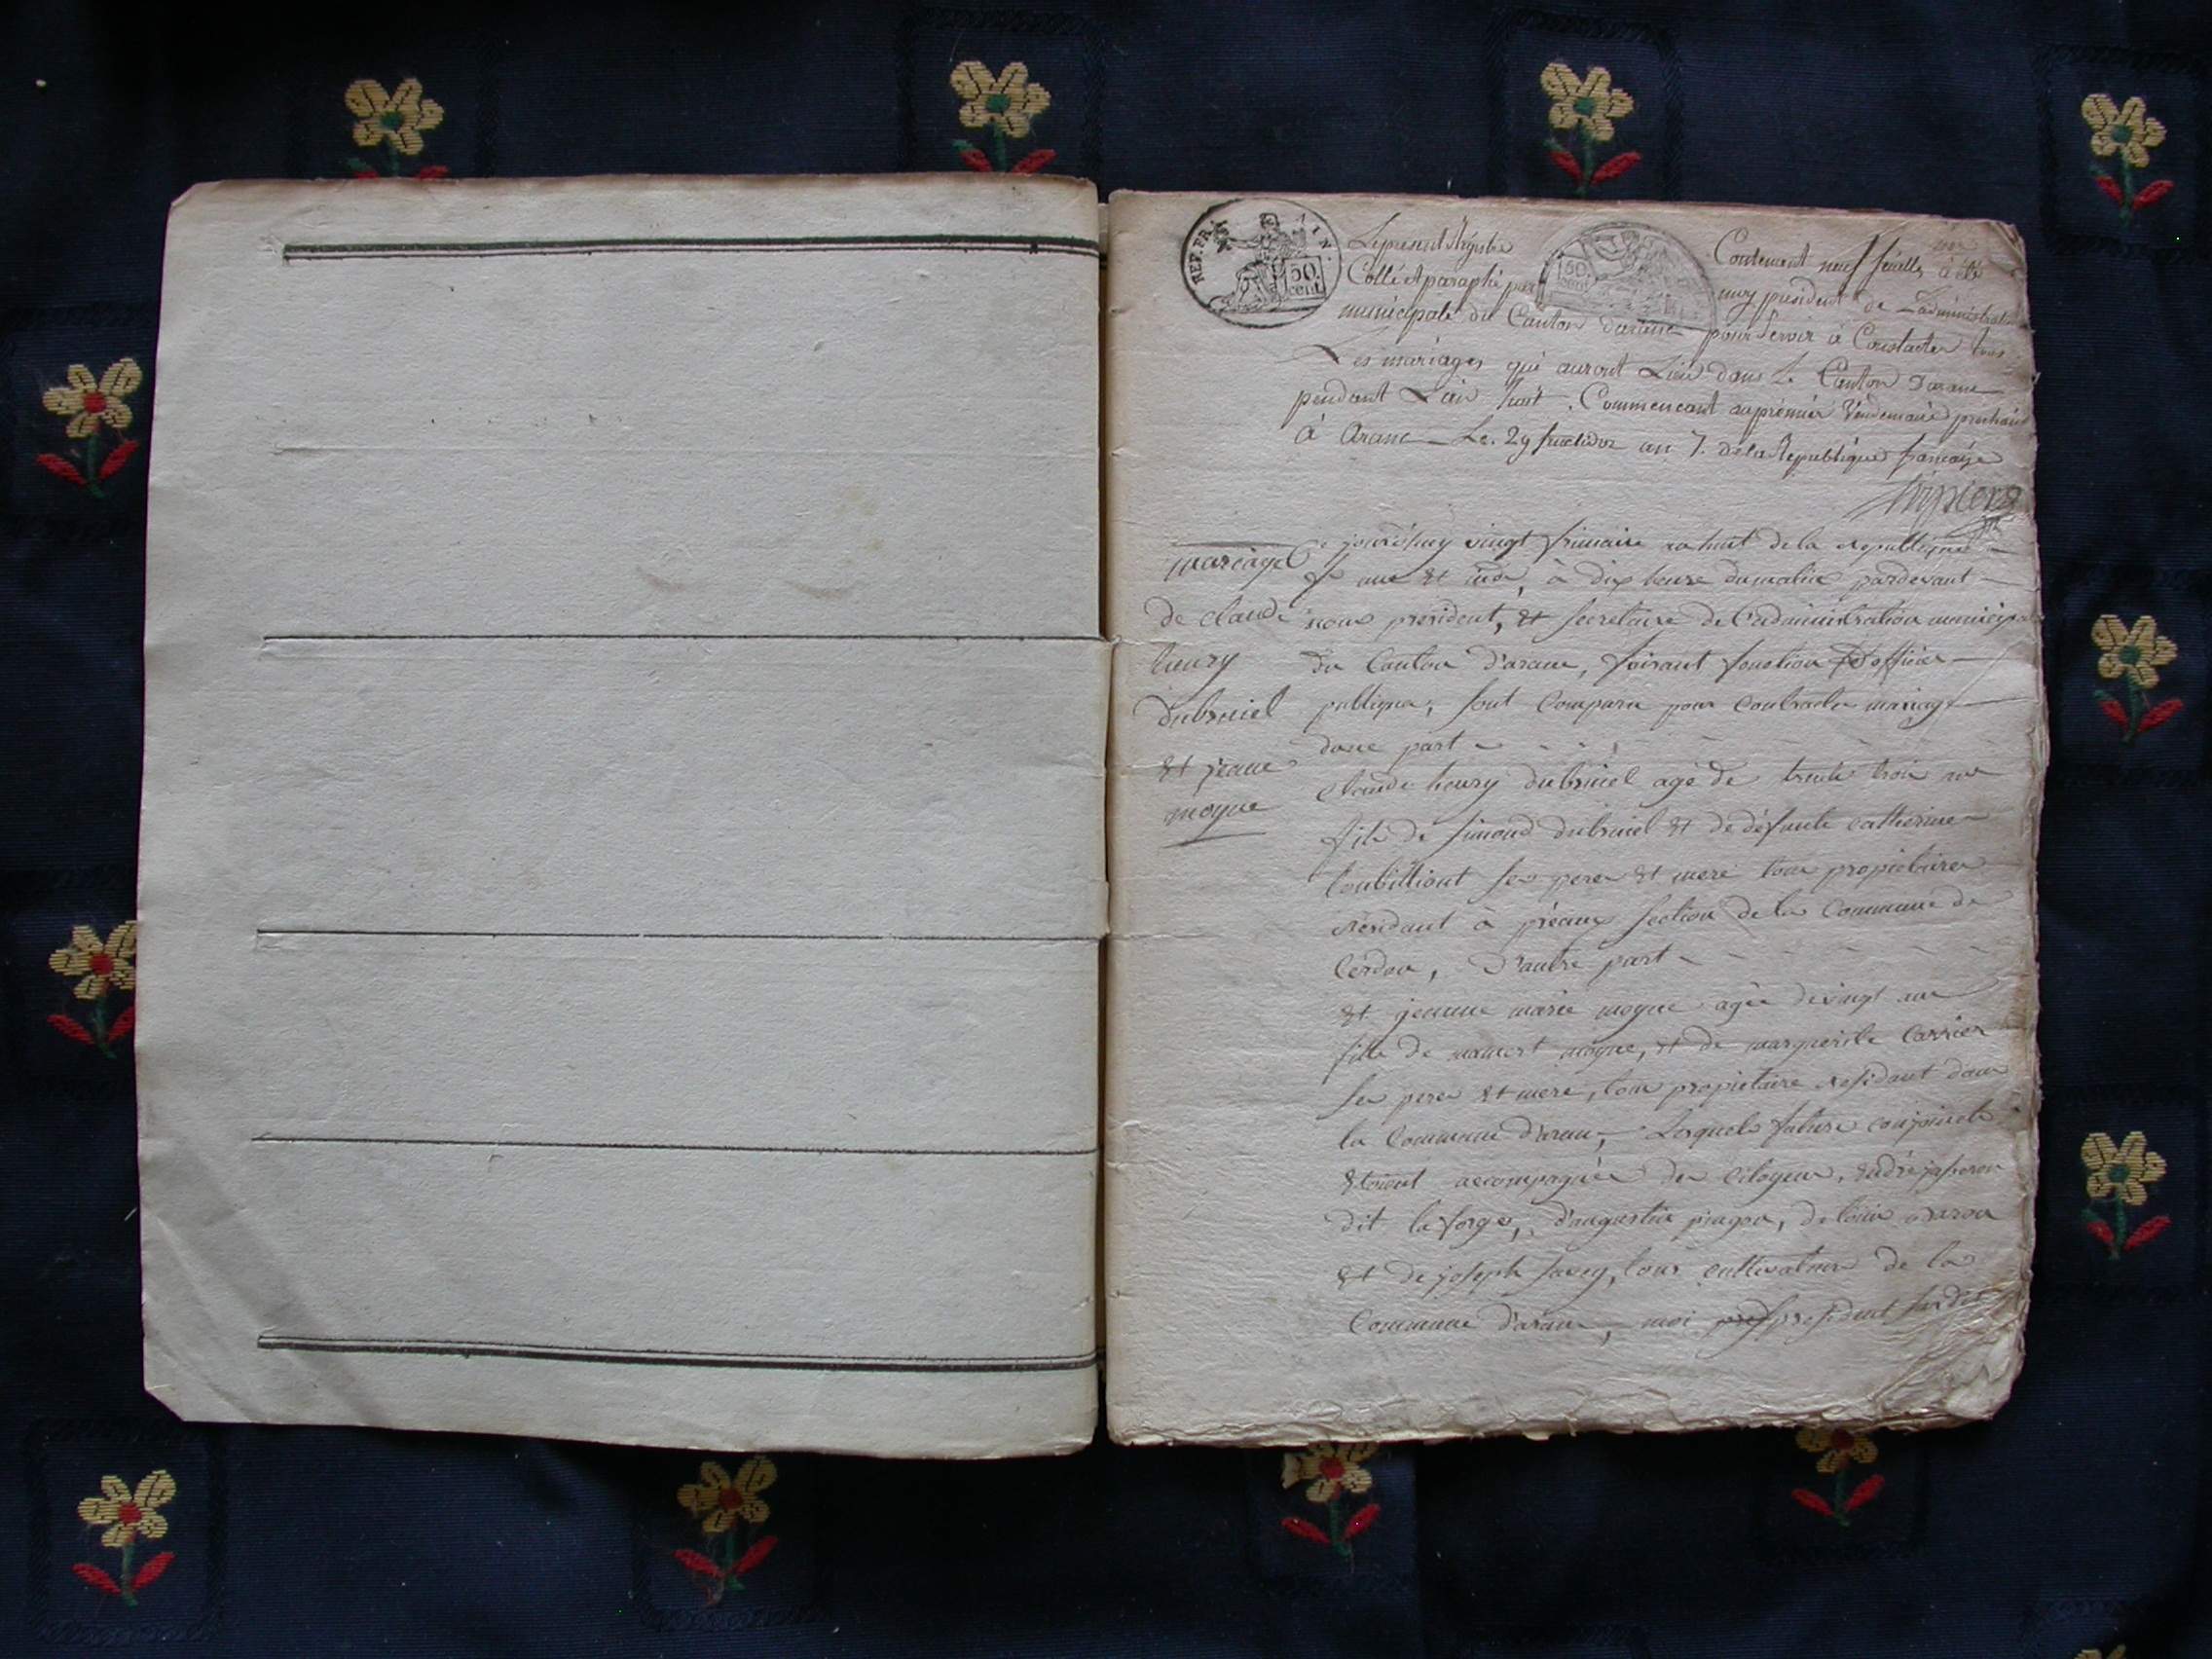 REP. FRA
50. cent.
50. cent.
Le present Régistre Contenant neuf feuillets à été
Cotté et paraphé par moy président de L'administration
municipale du Canton d'aranc pour Servir à Constater tous
Les mariages qui auront Lieu dans Le Canton d'aranc
pendant L'an huit. Commencant au prémier Vendemaire prochain
à Aranc Le 29 fructidor an 7. de la République francaise
mariage
de claude
henry
dubruiel
et jeanne
moyne
Ce jourd'huy vingt frimaire an huit de la republique
une et ind, à dix heure du matin pardevant
nous president, et secretaire de l'administration municipale
du Canton d'aranc, faisant fonction d'officier
publique, sont Comparu pour Contracter mariage
dune part
Claude henry dubruiel agé de trente trois ans
fils de simond dubruiel et de défunte catherine
ses pere et mere tous propietaires
résidant à préaux section de la Commune de
Cerdon, D'autre part
et jeanne marie moyne agée de vingt ans
fille de mamert moyne, et de marguerite Carrier
ses pere et mere, tous propietaire residant dans
la Commune d'aranc, Lesquels future conjoinct
étoient accompagnée des Citoyens, andré
dit la forge, d'augustin, de loüis
et de joseph savey, tous cultivateurs de la
Commune d'aranc, moi pres president susdit